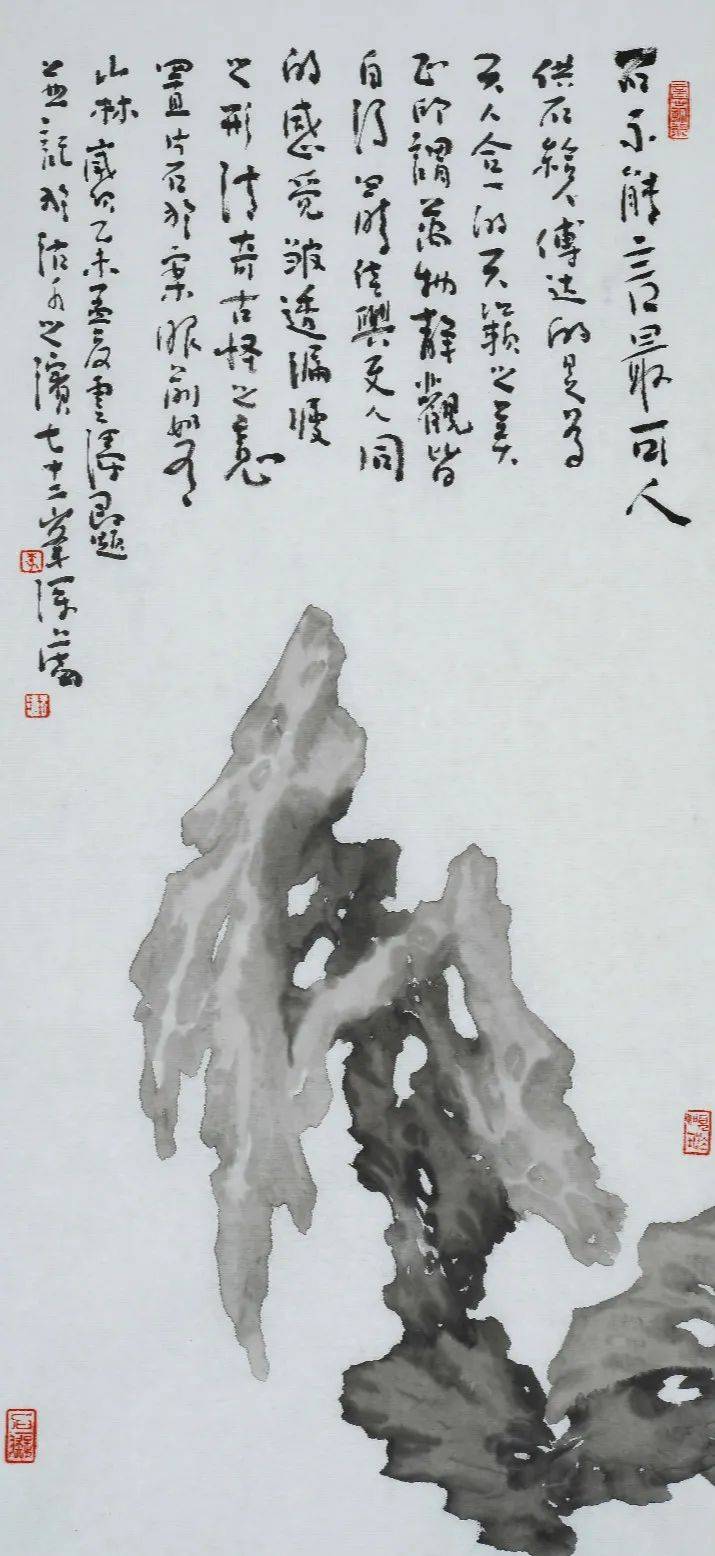 石不能言最可人
供石給人傳达的是為
天人合一的天籟之美
正所謂萬物静觀皆
自得四時佳興與人同
的感覺皱透漏瘦
之形清奇古怪之意
置片石於案眼前如有
山林歲次乙未孟夏雲濤題
並記於沽水之濱七十二峯